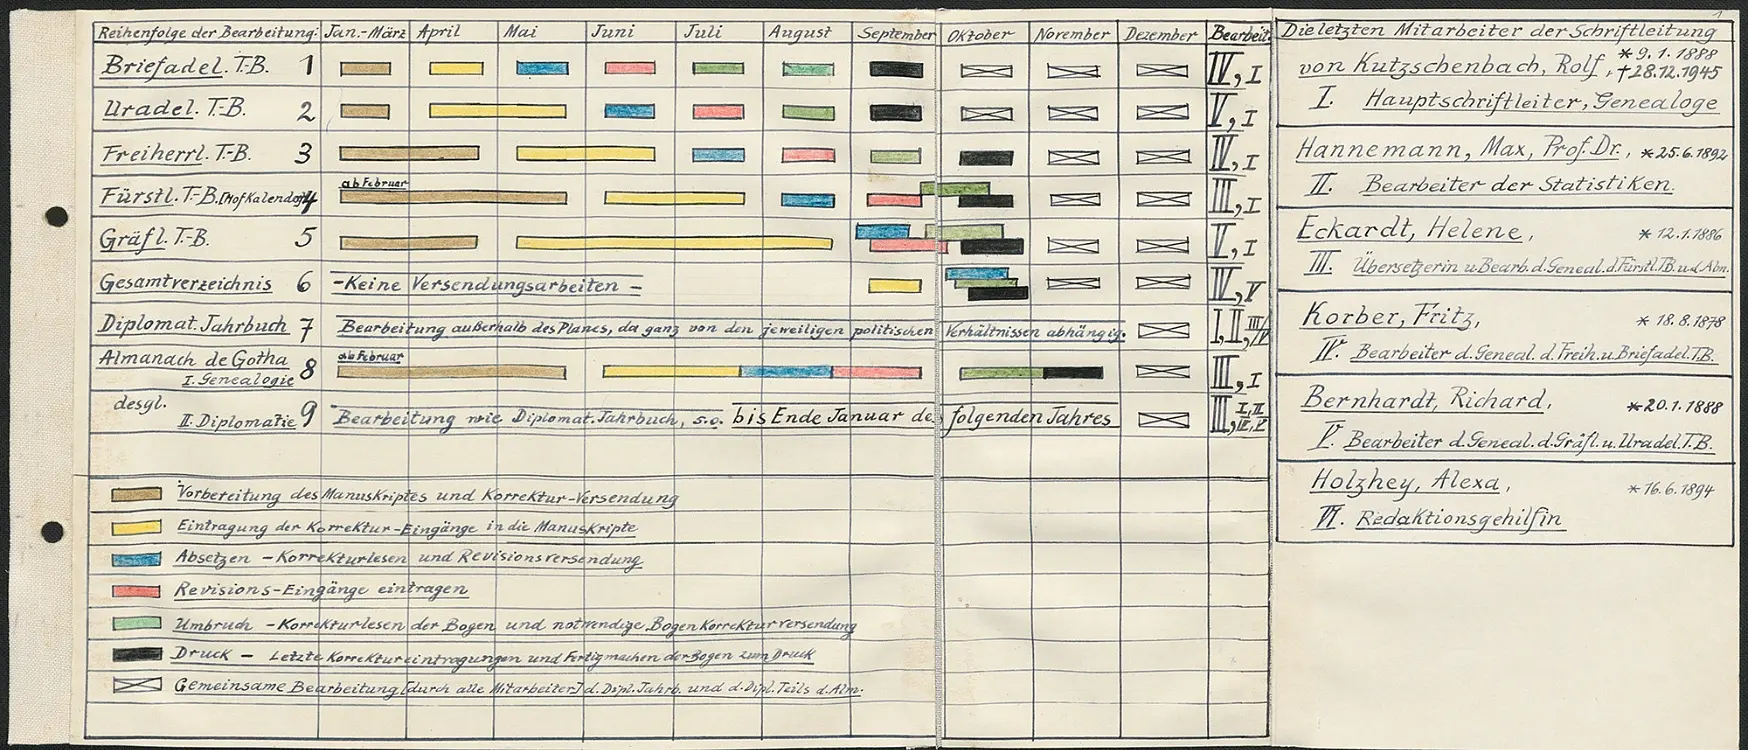 Reihenfolge der Bearbeitung: Jan.-März April Mai Juni Juli August September Oktober November Dezember Bearbeit.
Briefadel. T.-B. 1 IV, I
Uradel. T.-B. 2 V, I
Freiherrl. T.-B. 3 IV, I
ab Februar
Fürstl. T.-B. [Hofkalender] 4 III, I
Gräfl. T.-B. 5 V, I
Gesamtverzeichnis 6 - Keine Versendungsarbeiten - IV, V
Diplomat. Jahrbuch 7 Bearbeitung außerhalb des Planes, da ganz von den jeweiligen politischen Verhältnissen abhängig. I, II, III/IV
ab Februar
Almanach de Gotha
I. Genealogie 8 III, I
desgl.
II. Diplomatie 9 Bearbeitung wie Diplomat. Jahrbuch, s.o. bis Ende Januar des folgenden Jahres III, I, II, IV, V
Vorbereitung des Manuskriptes und Korrektur-Versendung
Eintragung der Korrektur-Eingänge in die Manuskripte
Absetzen - Korrekturlesen und Revisionsversendung
Revisions-Eingänge eintragen
Umbruch - Korrekturlesen der Bogen und notwendige Bogenkorrekturversendung
Druck - Letzte Korrektureintragungen und Fertigmachen der Bogen zum Druck
Gemeinsame Bearbeitung [durch alle Mitarbeiter] d. Dipl. Jahrb. und d. Dipl. Teils d. Alm.
1
Die letzten Mitarbeiter der Schriftleitung
von Kutzschenbach, Rolf, * 9.1.1888
† 28.12.1945
I. Hauptschriftleiter, Genealoge
Hannemann, Max, Prof. Dr., * 25.6.1892
II. Bearbeiter der Statistiken.
Eckardt, Helene, * 12.1.1886
III. Übersetzerin u. Bearb. d. Geneal. d. Fürstl. TB. u. d. Alm.
Korber, Fritz, * 18.8.1878
IV. Bearbeiter d. Geneal. d. Freih. u. Briefadel. T.B.
Bernhardt, Richard, * 20.1.1888
V. Bearbeiter d. Geneal. d. Gräfl. u. Uradel. T.B.
Holzhey, Alexa, * 16.6.1894
VI. Redaktionsgehilfin